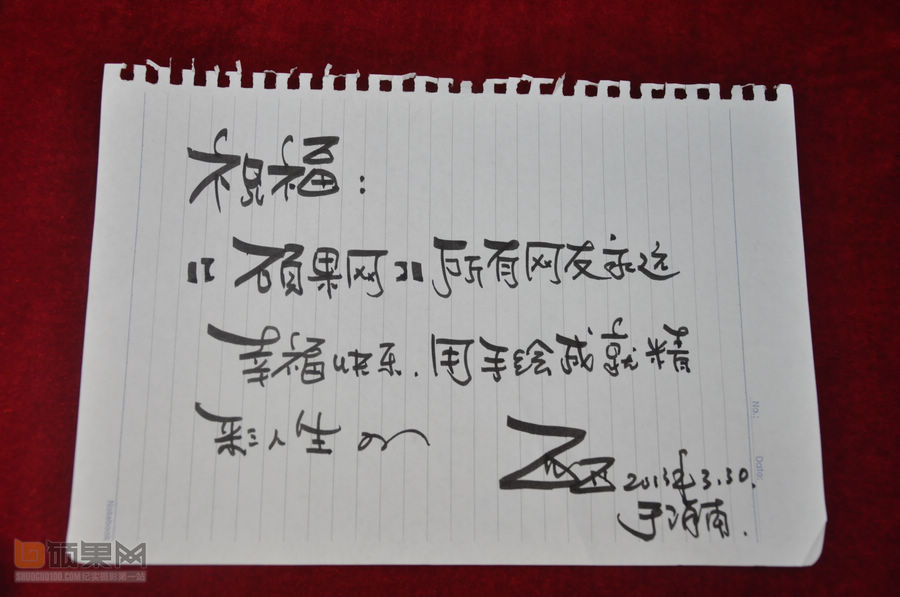 祝福：
【硕果网】所有网友永远
幸福快乐．用手绘成就精
彩人生
2013年3.30.
于济南．
No.:
Date:
硕果网
SHUOGUO100.COM纪实摄影第一站